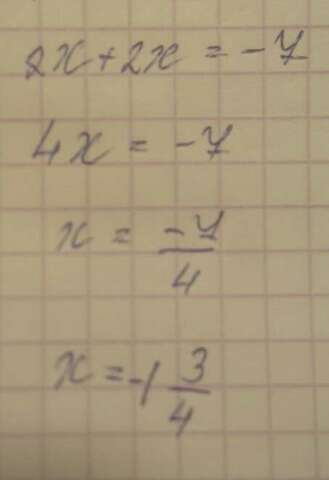 2x+2x = -7
4x = -7
x = -7/4
x = -1 3/4